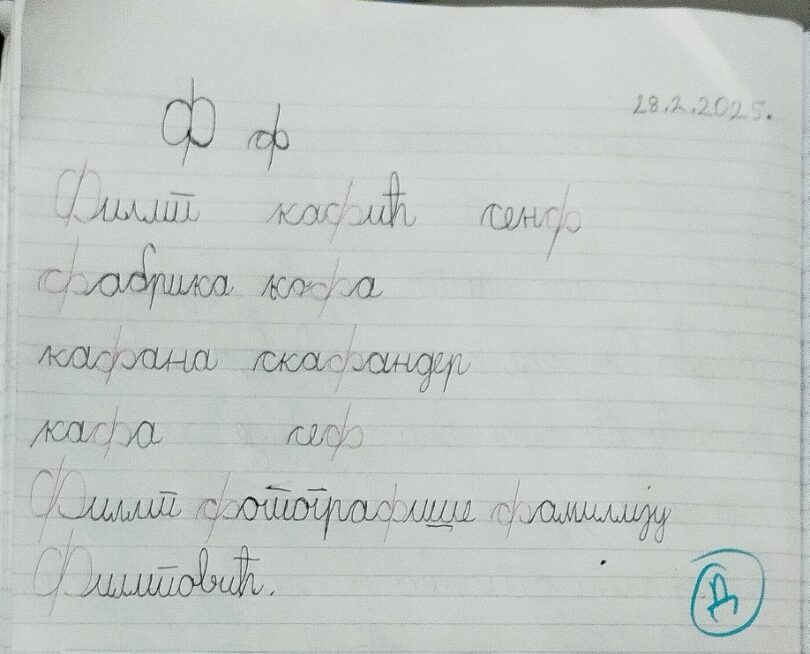 28.2.2025.
Ф ф
Филип кафић сенф
фабрика кафа
кафана скафандер
кафа сеф
Филип фотографише фамилију
Филиповић.